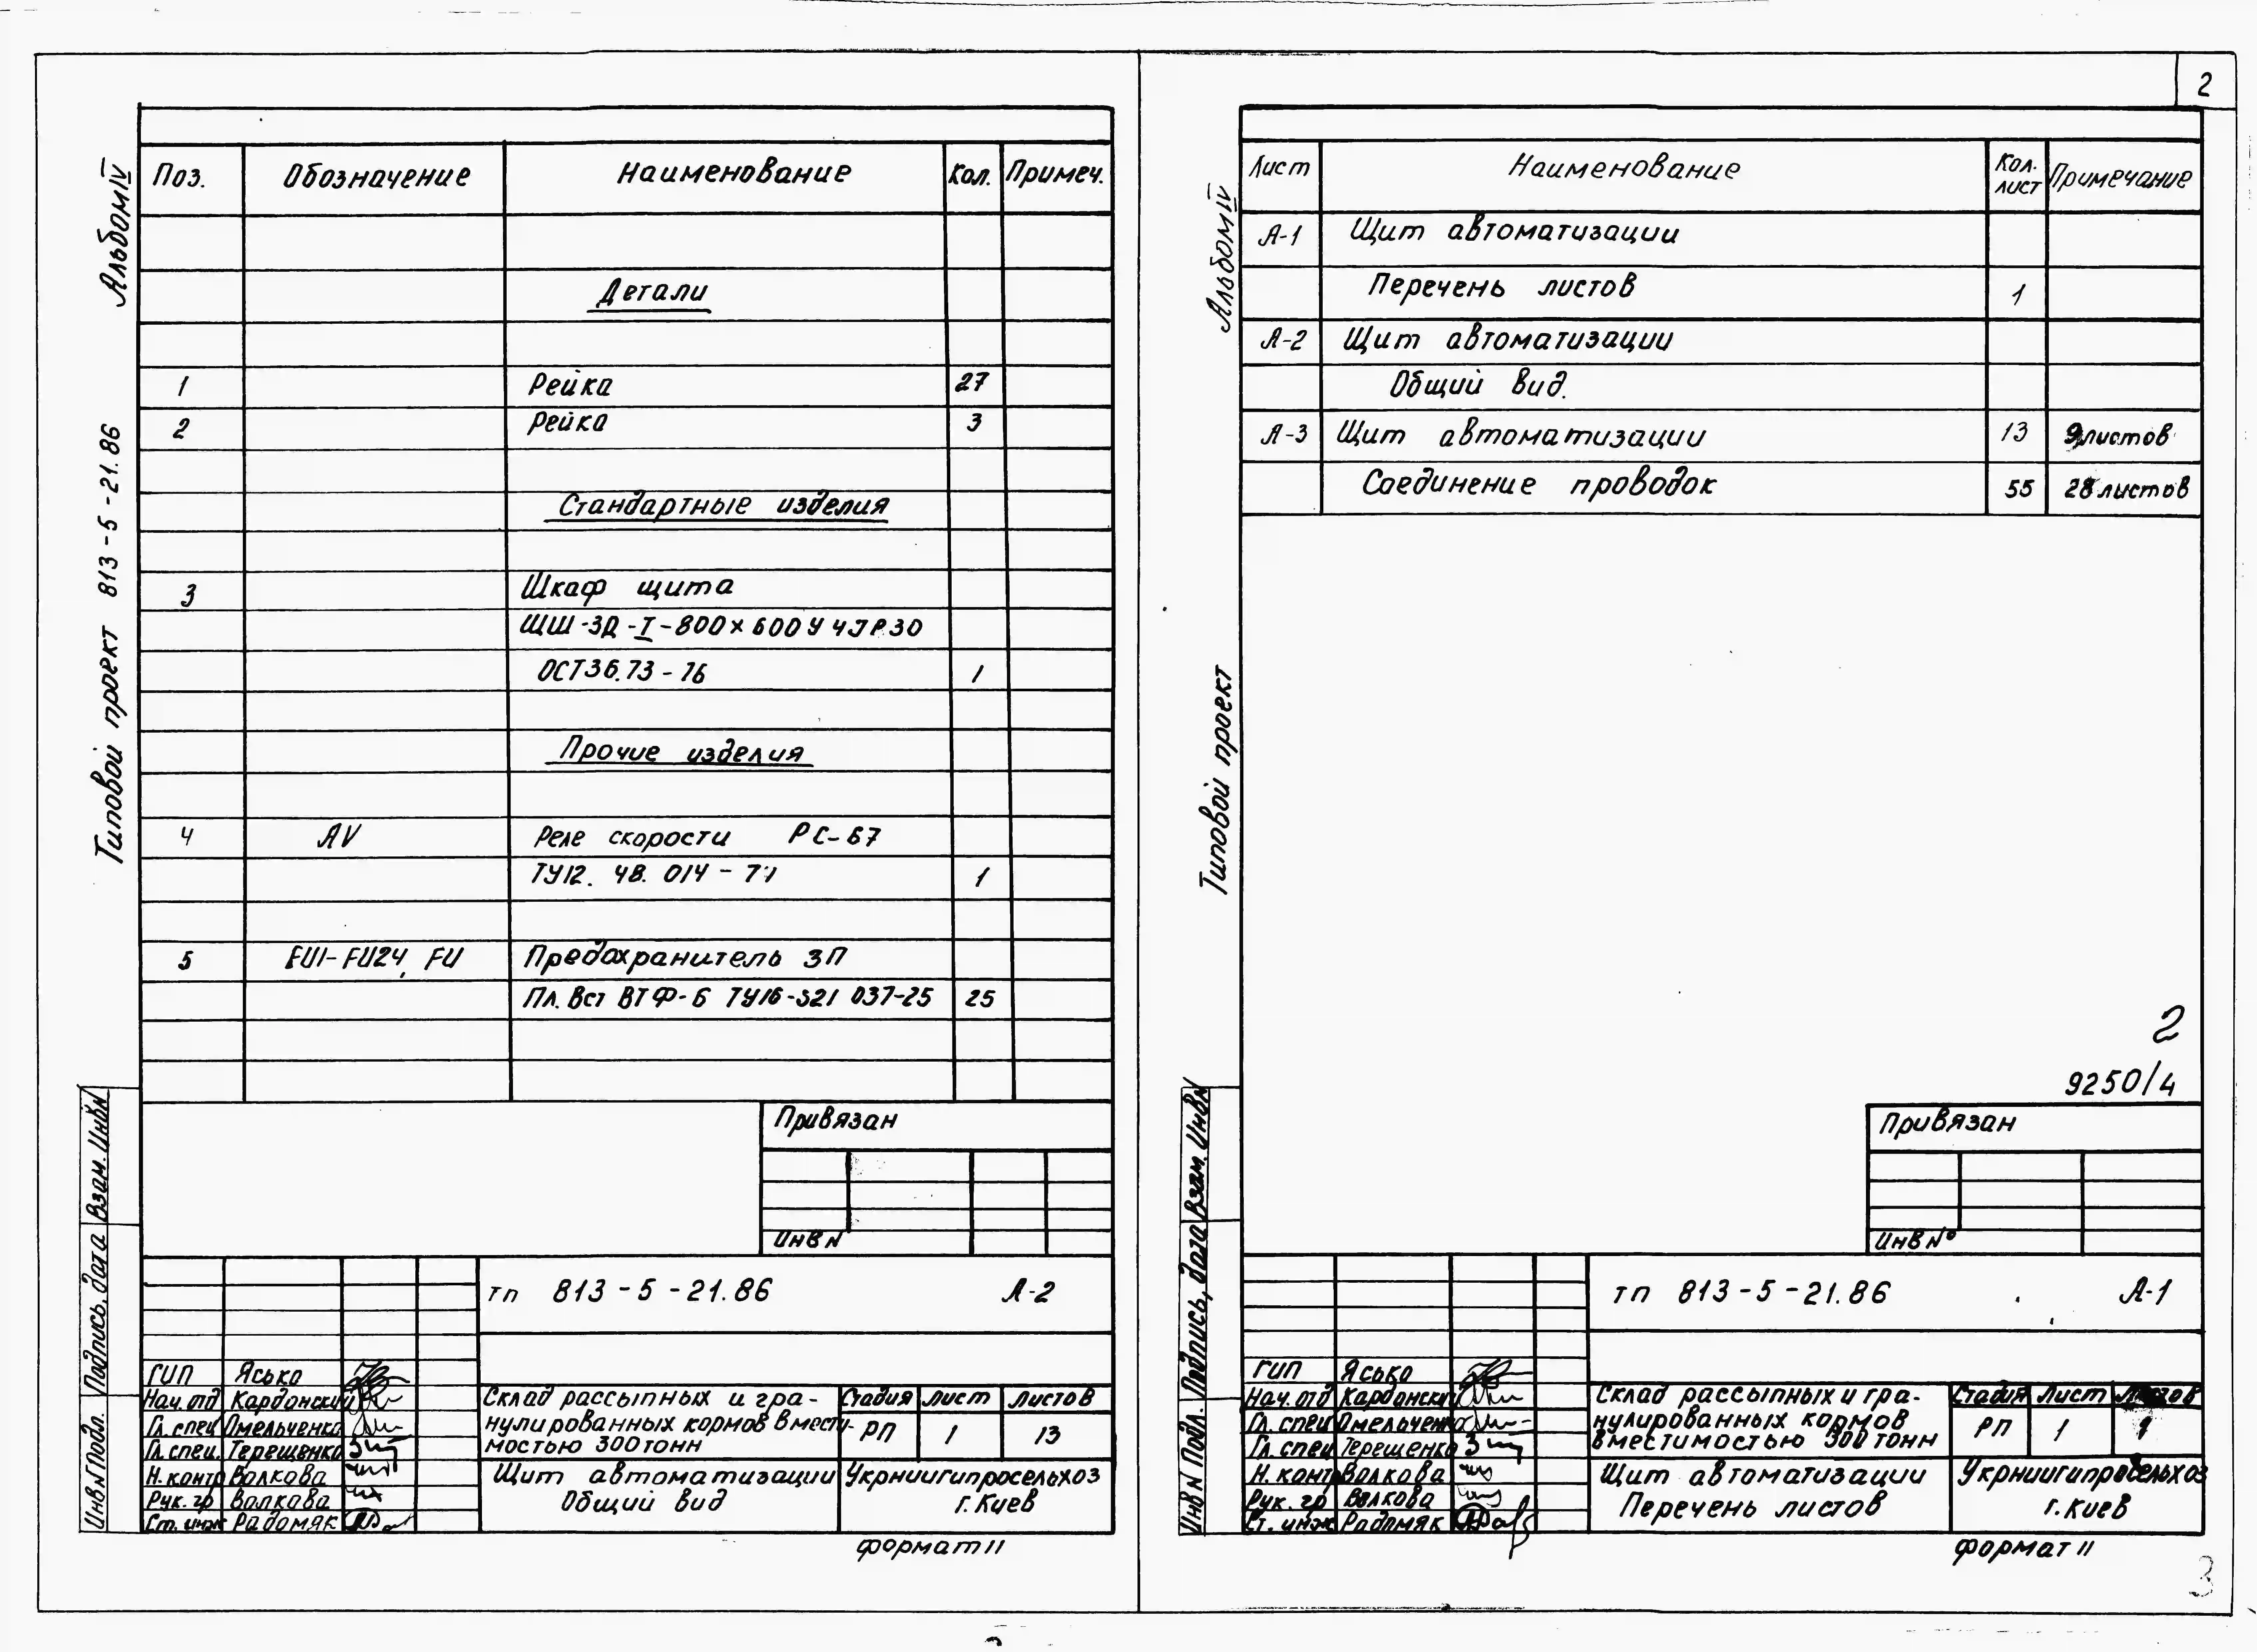 2
Альбом IV
Типовой проект 813-5-21.86
Поз. Обозначение Наименование Кол. Примеч.
Детали
1 Рейка 27
2 Рейка 3
Стандартные изделия
3 Шкаф щита
ЩШ-ЗД-I-800х600 У4 JР30
ОСТ36.73-76 1
Прочие изделия
4 AV Реле скорости РС-67
ТУ12. 48. 014-71 1
5 FU1-FU24, FU Предохранитель ЗП
Пл. Вст ВТФ-6 ТУ16-521 037-75 25
Привязан
Инв N
Взам. Инв N
Подпись, дата
Инв N Подл.
тп 813-5-21.86 А-2
ГИП Ясько
Нач. отд Кардонский
Гл. спец Омельченко
Гл. спец. Терещенко
Н. контр Волкова
Рук. гр Волкова
Ст. инж Радомяк
Склад рассыпных и гра-
нулированных кормов вмести-
мостью 300 тонн
Стадия Лист Листов
РП 1 13
Щит автоматизации
Общий вид
Укрниигипросельхоз
г. Киев
формат 11
Альбом IV
Типовой проект
Лист Наименование Кол. лист Примечание
А-1 Щит автоматизации
Перечень листов 1
А-2 Щит автоматизации
Общий вид.
А-3 Щит автоматизации 13 9 листов
Соединение проводок 55 28 листов
2
9250/4
Привязан
Инв N°
Взам. Инв N
Подпись, дата
Инв N Подл.
тп 813-5-21.86 А-1
ГИП Ясько
Нач. отд Кардонский
Гл. спец Омельченко
Гл. спец Терещенко
Н. контр Волкова
Рук. гр Волкова
Ст. инж Радомяк
Склад рассыпных и гра-
нулированных кормов
вместимостью 300 тонн
Стадия Лист Листов
РП 1 1
Щит автоматизации
Перечень листов
Укрниигипросельхоз
г. Киев
формат 11
3